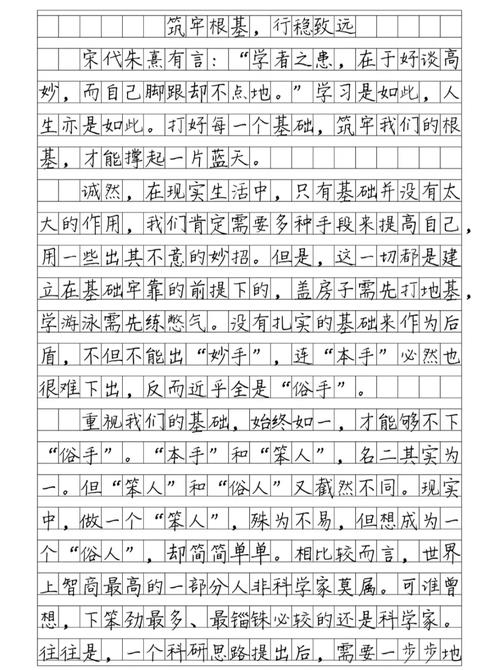 筑牢根基，行稳致远
宋代朱熹有言：“学者之患，在于好谈高
妙，而自己脚跟却不点地。”学习是如此，人
生亦是如此。打好每一个基础，筑牢我们的根
基，才能撑起一片蓝天。
诚然，在现实生活中，只有基础并没有太
大的作用，我们肯定需要多种手段来提高自己，
用一些出其不意的妙招。但是，这一切都是建
立在基础牢靠的前提下的，盖房子需先打地基，
学游泳需先练憋气。没有扎实的基础来作为后
盾，不但不能出“妙手”，连“本手”必然也
很难下出，反而近乎全是“俗手”。
重视我们的基础，始终如一，才能够不下
“俗手”。“本手”和“笨人”，名二其实为
一。但“笨人”和“俗人”又截然不同。现实
中，做一个“笨人”，殊为不易，但想成为一
个“俗人”，却简简单单。相比较而言，世界
上智商最高的一部分人非科学家莫属。可谁曾
想，下笨劲最多、最锱铢必较的还是科学家。
往往是，一个科研思路提出后，需要一步步地